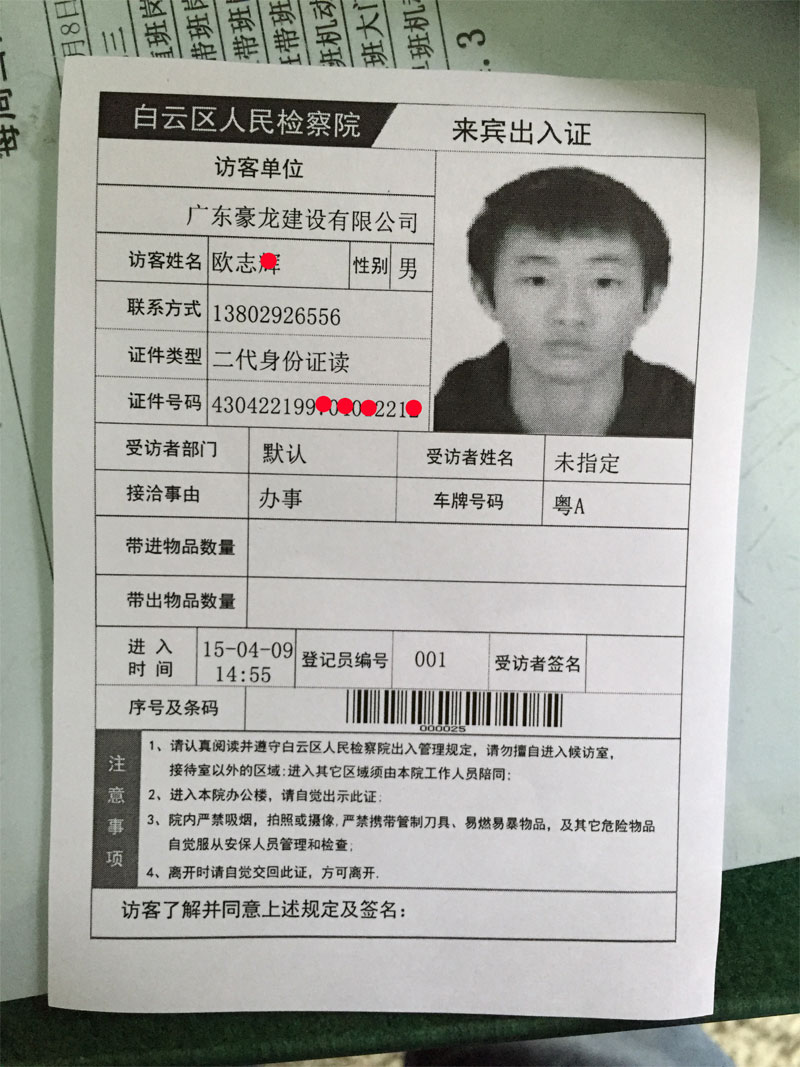 月8日
三
2.3
白云区人民检察院
来宾出入证
访客单位
广东豪龙建设有限公司
访客姓名 欧志 性别 男
联系方式 13802926556
证件类型 二代身份证读
证件号码
受访者部门 默认 受访者姓名 未指定
接洽事由 办事 车牌号码 粤A
带进物品数量
带出物品数量
进入时间 15-04-09 14:55 登记员编号 001 受访者签名
序号及条码
000025
注意事项
1、请认真阅读并遵守白云区人民检察院出入管理规定，请勿擅自进入候访室，
接待室以外的区域;进入其它区域须由本院工作人员陪同;
2、进入本院办公楼，请自觉出示此证;
3、院内严禁吸烟，拍照或摄像,严禁携带管制刀具、易燃易暴物品，及其它危险物品
自觉服从安保人员管理和检查;
4、离开时请自觉交回此证，方可离开.
访客了解并同意上述规定及签名：